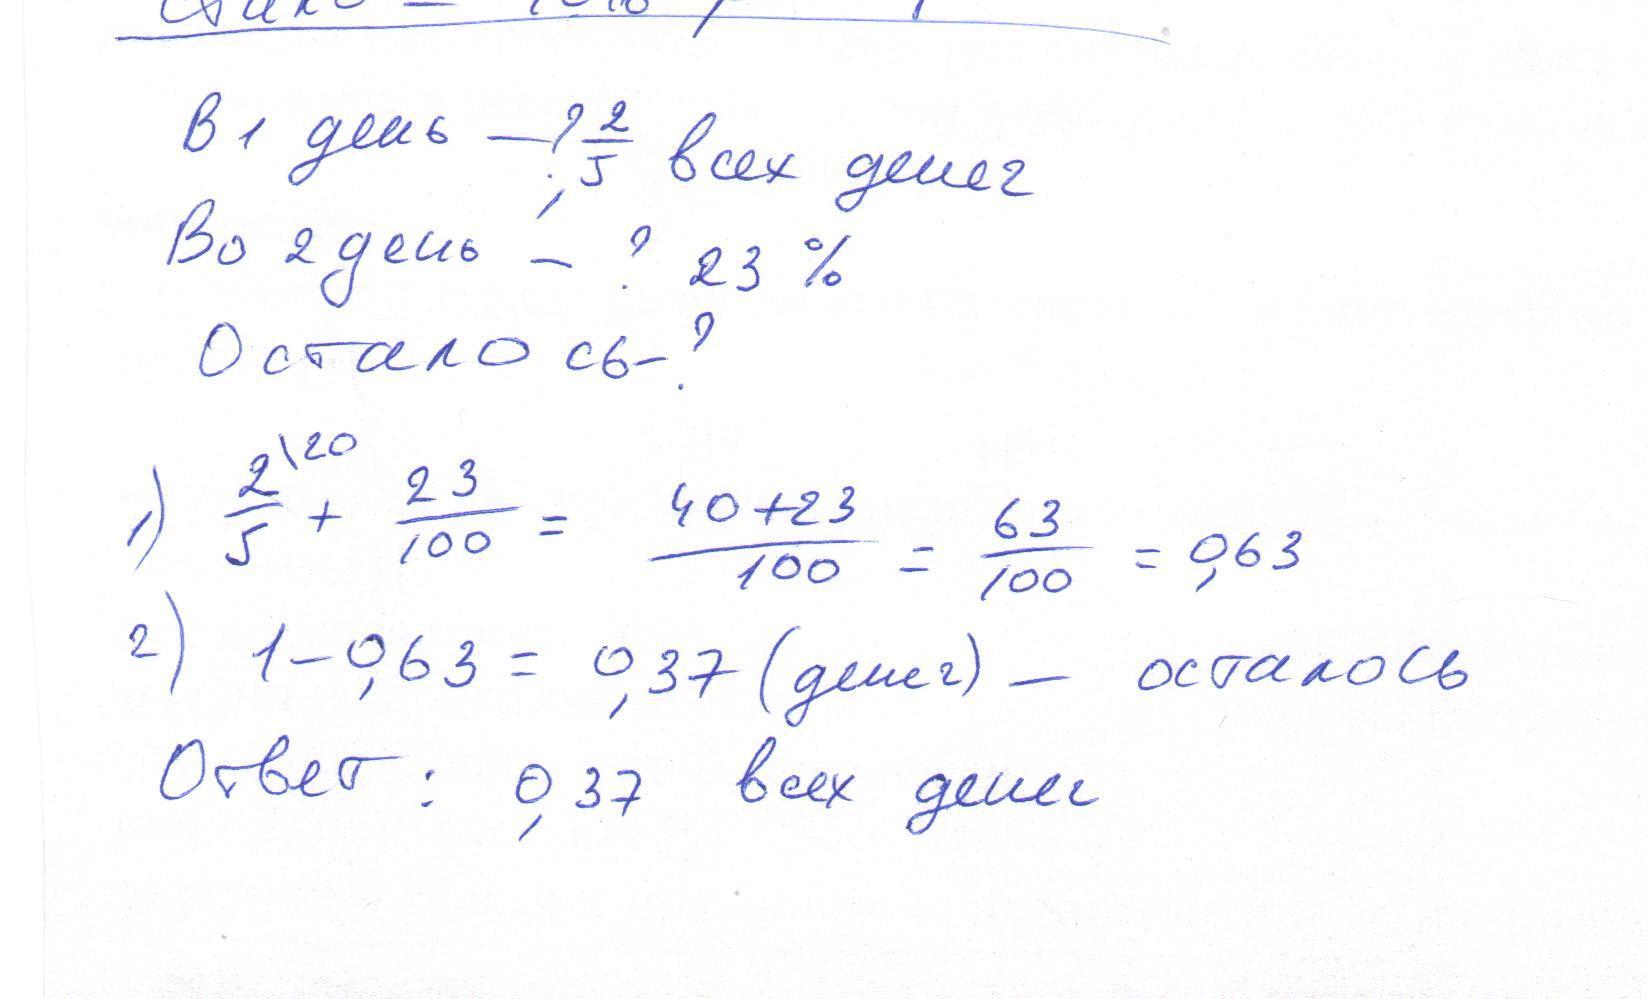 В 1 день — ?, 2/5 всех денег
Во 2 день — ? 23 %
Осталось — ?
1) 2\20/5 + 23/100 = 40+23/100 = 63/100 = 0,63
2) 1 – 0,63 = 0,37 (денег) — осталось
Ответ: 0,37 всех денег